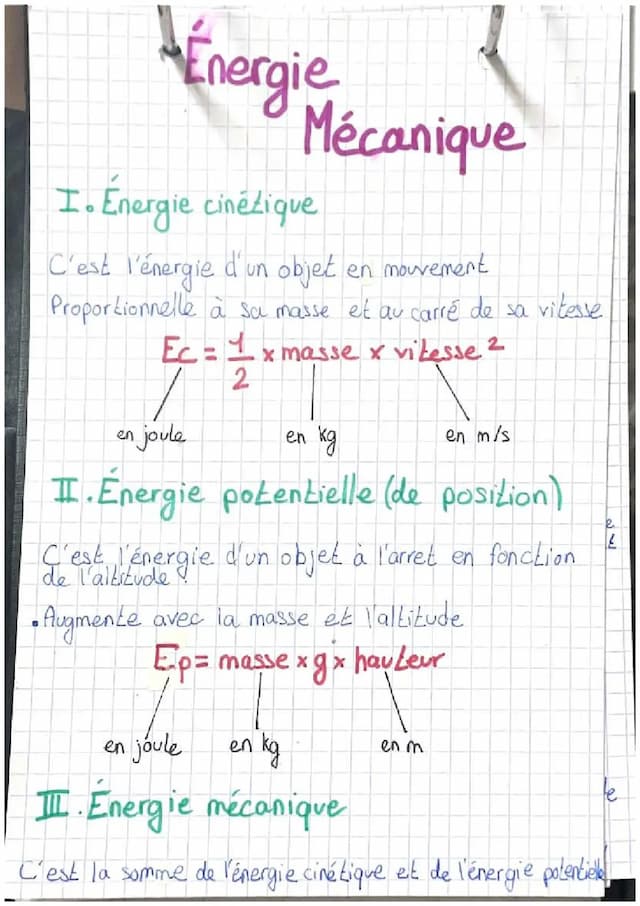 Énergie
Mécanique
I. Énergie cinétique
C'est l'énergie d'un objet en mouvement
Proportionnelle à sa masse et au carré de sa vitesse
Ec = 1/2 x masse x vitesse²
en joule en kg en m/s
II. Énergie potentielle (de position)
C'est l'énergie d'un objet à l'arret en fonction
de l'altitude.
• Augmente avec la masse et l'altitude
Ep = masse x g x hauteur
en joule en kg en m
III. Énergie mécanique
C'est la somme de l'énergie cinétique et de l'énergie potentielle